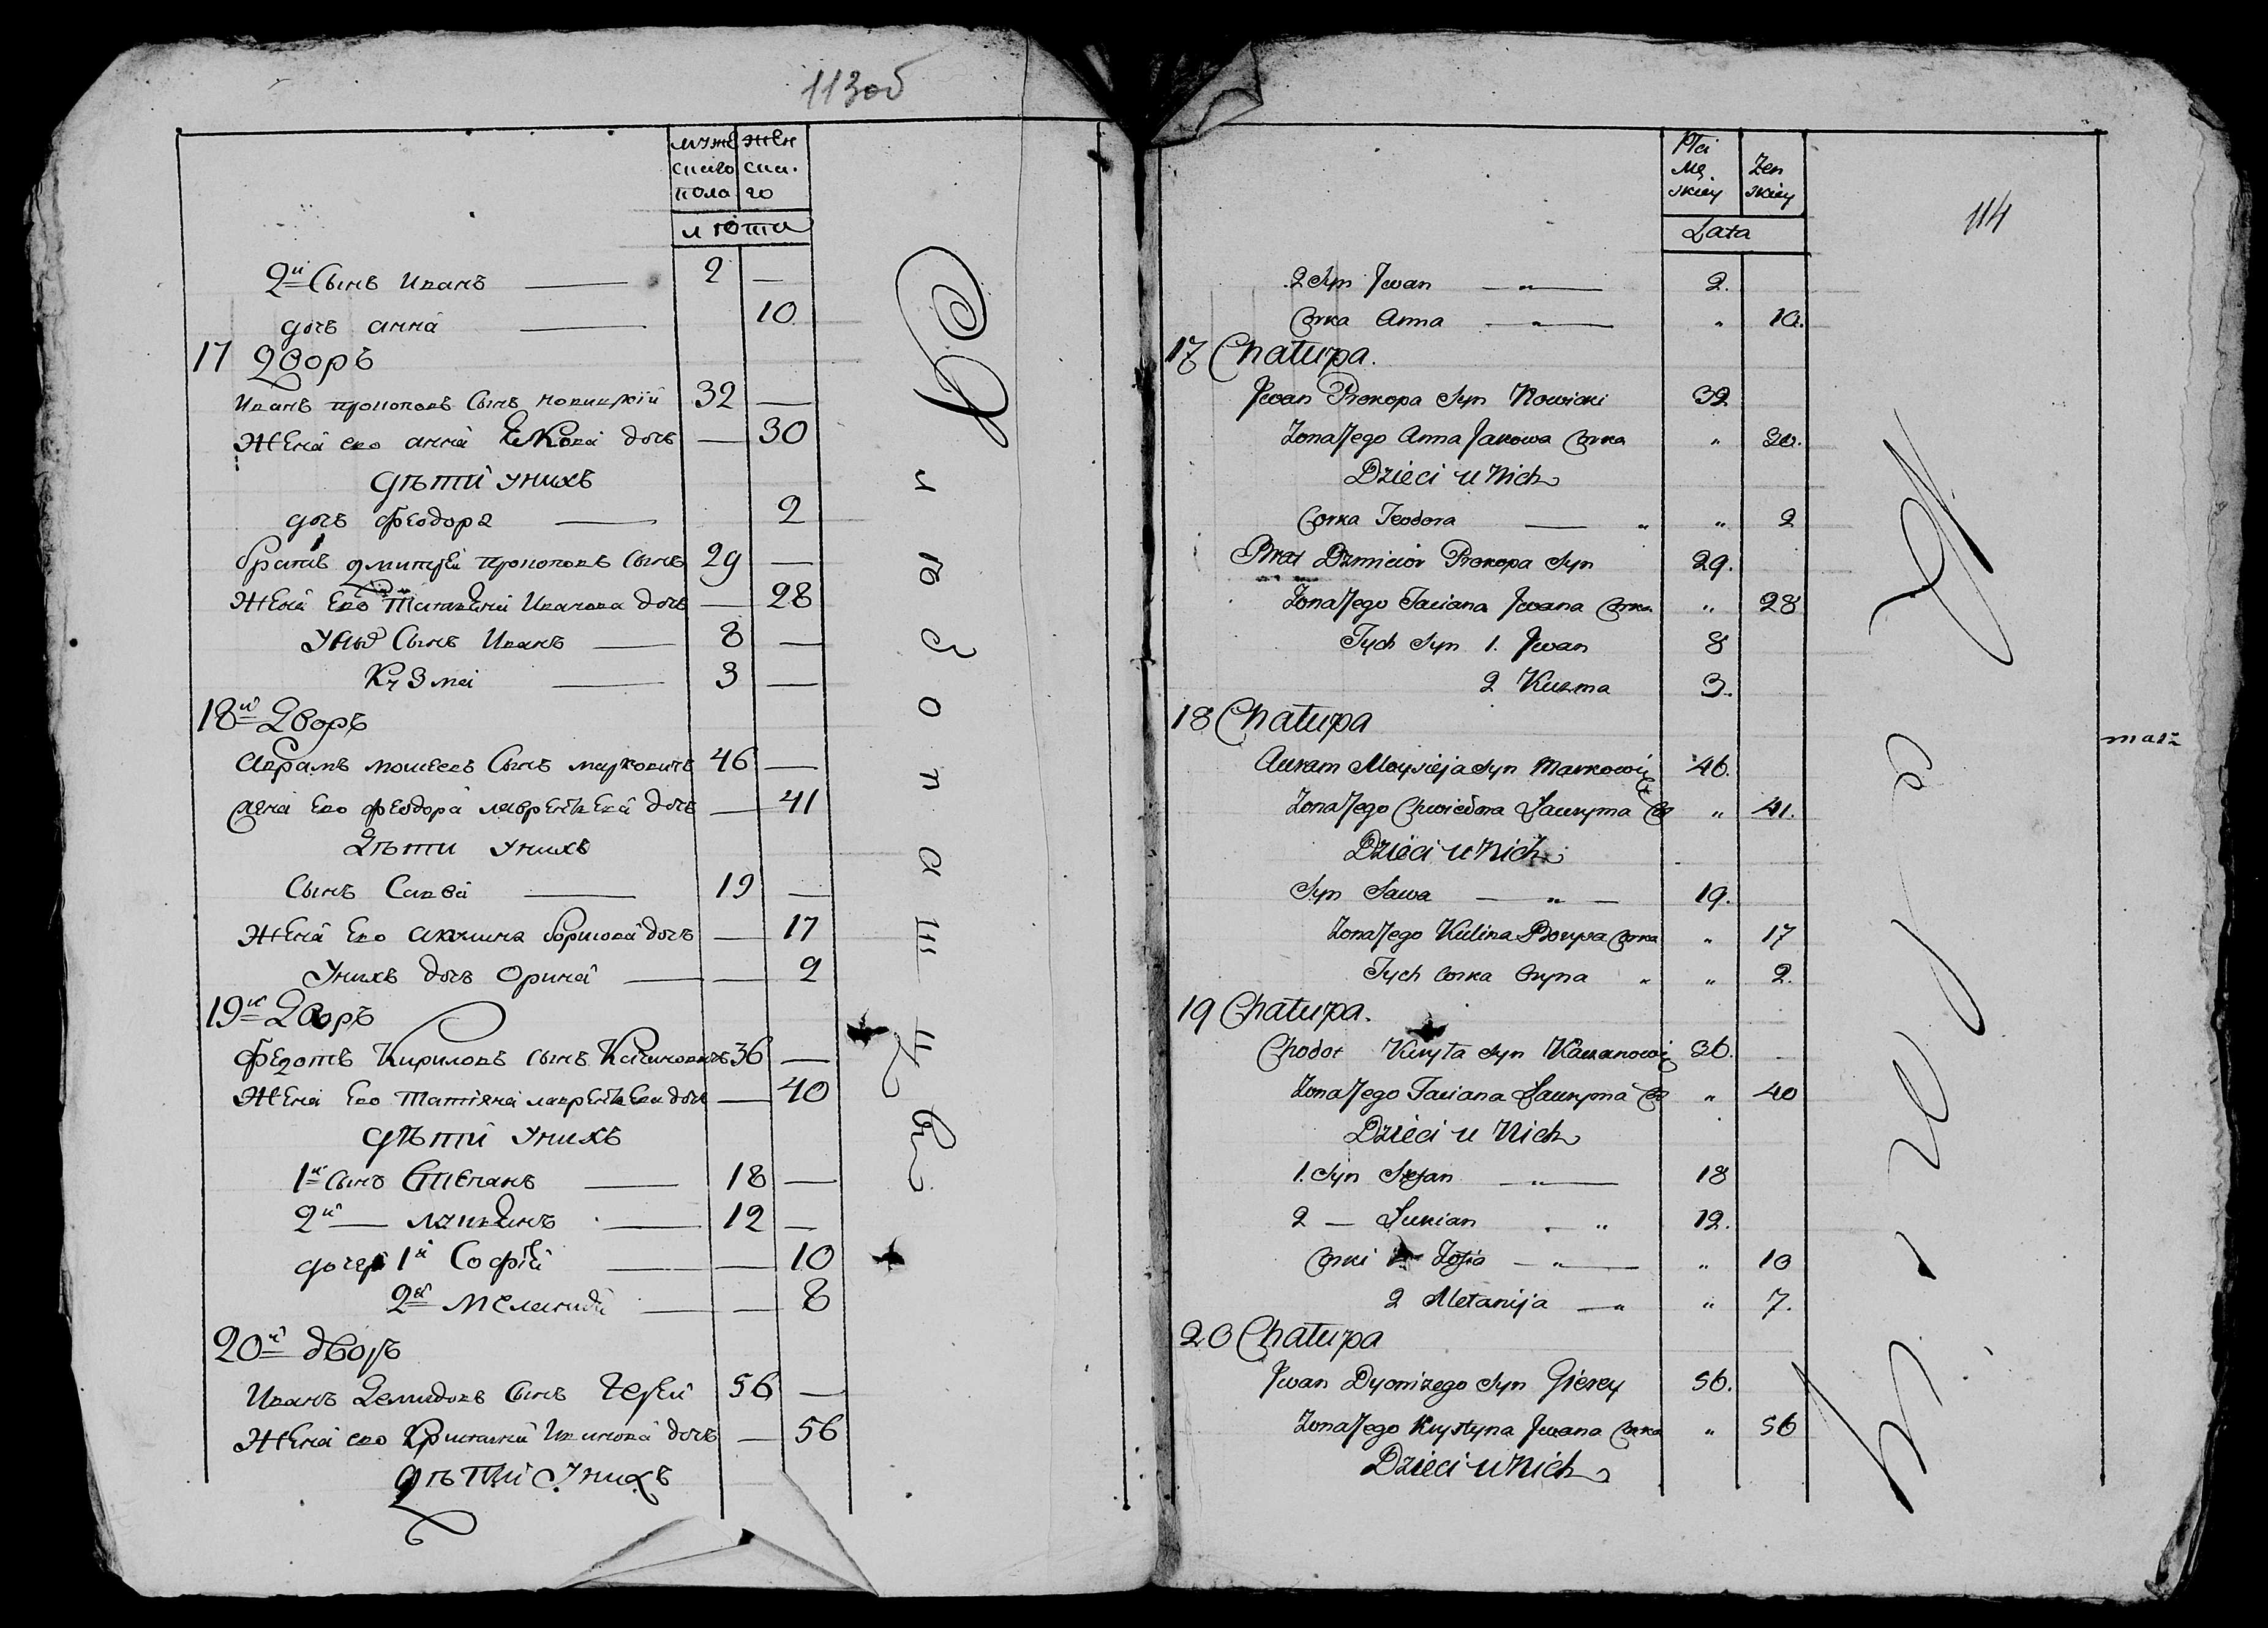 113об
мужескаго пола
женскаго
лѣта
2й Сынъ Иванъ — 2 —
дочь анна — 10
17 Дворъ
Иванъ прокоповъ Сынъ новицкій 32 —
Жена ево анна Якова дочь — 30
Дѣти у нихъ
дочь феодора — 2
братъ дмитрей прокоповъ Сынъ 29 —
Жена Ево Татьяна Иванова дочь — 28
У ныхъ Сынъ Иванъ — 8 —
Кузма — 3 —
18й Дворъ
Аврамъ мошеевъ Сынъ марковичь 46 —
жена Ево феодора лаврентьева дочь — 41
Дѣти у нихъ
Сынъ Савва — 19 —
Жена Ево акулина борисова дочь — 17
У нихъ дочь Орина — — 2
19й Дворъ
Федотъ Кириловъ сынъ 36 —
Жена Ево Татіяна лаврентьева дочь — 40
Дѣти у нихъ
1й сынъ Степанъ — 18 —
2й — лукьянъ — 12 —
дочери 1я Софія — — 10
2я Мелания — — 8
20й дворъ
Иванъ Демидовъ Сынъ Герей 56 —
Жена ево Христина Иванова дочь — 56
Дѣти у нихъ
114
Płci Męskiey
Żenskiey
Lata
2 Syn Jwan — „ — 2.
Corka Anna — „ — „ 10.
17 Chałupa.
Jwan Prokopa Syn Nowicki 32
Żona Jego Anna Jakowa Corka „ 30.
Dzieci u Nich
Corka Teodora — „ „ 2
Brat Dzmicior Prokopa Syn 29.
Żona Jego Taciana Jwana Corka „ 28
Tych Syn 1. Jwan 8
2 Kuzma 3.
18 Chałupa
Auram Moysieja Syn Markowicz 46.
Żona Jego Chwiedora Ławryna Co „ 41.
Dzieci u Nich
Syn Sawa — „ — 19.
Żona Jego Kulina Borysa Corka „ 17
Tych Corka Oryna „ „ 2.
19 Chałupa.
Chodor Kiryła Syn 36.
Żona Jego Taciana Ławryna Co „ 40
Dzieci u Nich
1. Syn Stefan — „ — 18
2 — Łukian „ 12.
Corki 1 Zofia — „ — „ 10
2 Mełanija — „ „ 7.
20 Chałupa
Jwan Dyonizego Syn Gierey 56.
Żona Jego Krystyna Jwana Corka „ 56
Dzieci u Nich